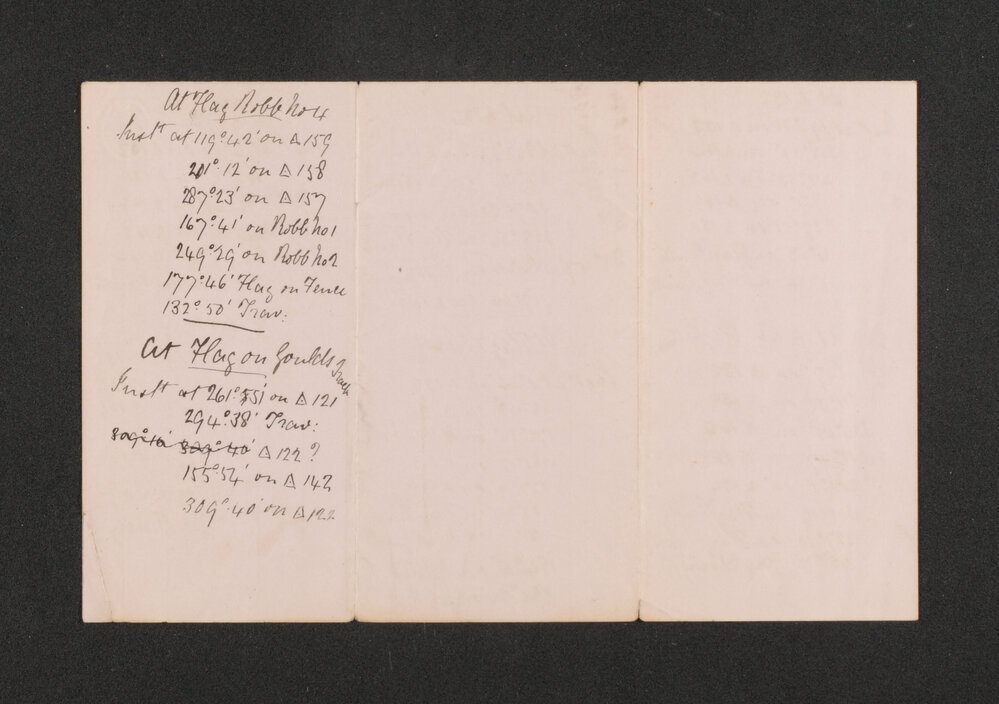 At Flag Robb No 4
Inst at 119°.42' on △ 159
201°.12' on △ 158
287°.23' on △ 157
167°.41' on Robb No 1
249°.29' on Robb No 2
177°.46' Flag on Fence
132°.50' Trav:
At Flag on Goulds Track
Inst at 261°.51' on △ 121
294°.38' Trav:
309°.40' △ 122?
155°.54' on △ 142
309°.40' on △ 122